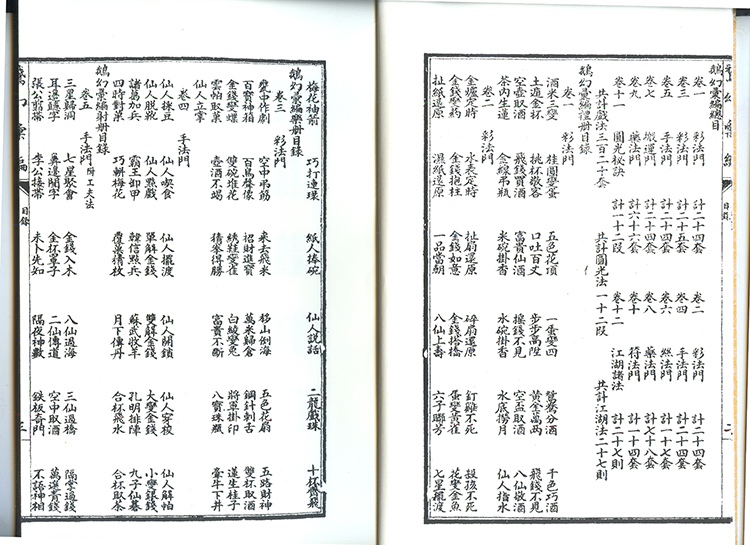 鵝幻彙編總目
卷一 彩法門 計二十四套 卷二 彩法門 計二十四套
卷三 彩法門 計二十五套 卷四 手法門 計二十四套
卷五 手法門 計二十四套 卷六 絲法門 計一十七套
卷七 搬運門 計二十四套 卷八 藥法門 計七十八套
卷九 藥法門 計六十六套 卷十 符法門 計一十四套
卷十一 圓光秘訣 計一十二段 卷十二 江湖諸法 計二十七則
共計戲法三百二十套 共計圓光法一十二段 共計江湖法二十七則
鵝幻彙編禮冊目錄
卷一 彩法門
酒米三變 桂圓變蛋 五色花項 一蛋變四 鴛鴦分酒 千色巧酒
土遁金杯 挑杯敬客 口吐百丈 步步高陞 黃金萬兩 飛錢不見
空壺取酒 飛錢買酒 富貴仙酒 搖錢不見 空盃取酒 八仙敬酒
茶內生蓮 金線吊瓶 米碗掛香 水碗掛香 水底撈月 仙人指水
卷二 彩法門
金爐定時 水表定時 扯扇還原 碎扇還原 釘雞不死 殺孩不死
金錢變豹 金錢抱柱 金錢如意 金錢搭橋 蛋變黃雀 花變金魚
扯紙還原 濕紙還原 一品當朝 八仙上壽 六子聯芳 七星羅渡
目錄
二
梅花袖箭 巧打連環 紙人捧碗 仙人說話 二龍戲珠 十杯齊飛
鵝幻彙編樂冊目錄
卷三 彩法門
甕中作劇 空中弔筯 來去飛米 移山倒海 五色花扇 五路財神
百寶神箱 百鳥聲像 招財進寶 萬米歸倉 鋼針刺舌 雙杯取酒
金錢變蝶 雙碗堆花 綉鞋變雀 白綾變兔 將軍掛印 蓮生桂子
雲帕取菓 壺酒不竭 猜拳得勝 富貴不斷 八寶珠瓶 牽牛下井
仙人立掌
卷四 手法門
仙人採豆 仙人喫食 仙人擺渡 仙人開鎖 仙人穿梭 仙人解帕
仙人脫靴 仙人點戲 單解金錢 雙解金錢 大變金錢 小變銀錢
諸葛加兵 霸王卸甲 韓信點兵 蘇武牧羊 孔明排陣 九子仙卷
四時對菓 巧斬梅花 覆菓猜枚 月下傳丹 合杯飛水 合杯取茶
鵝幻彙編射冊目錄
卷五 手法門 附工夫法
三星歸洞 七星聚會 金錢入木 八仙過海 三仙過橋 隔掌過錢
耳邊聽字 鼻邊聞字 金杯覆子 二仙傳道 空中取酒 萬選青錢
張公翦帶 李公接帶 未卜先知 隔夜神數 鉄板奇門 不語神相
鵝幻彙編
目錄
三